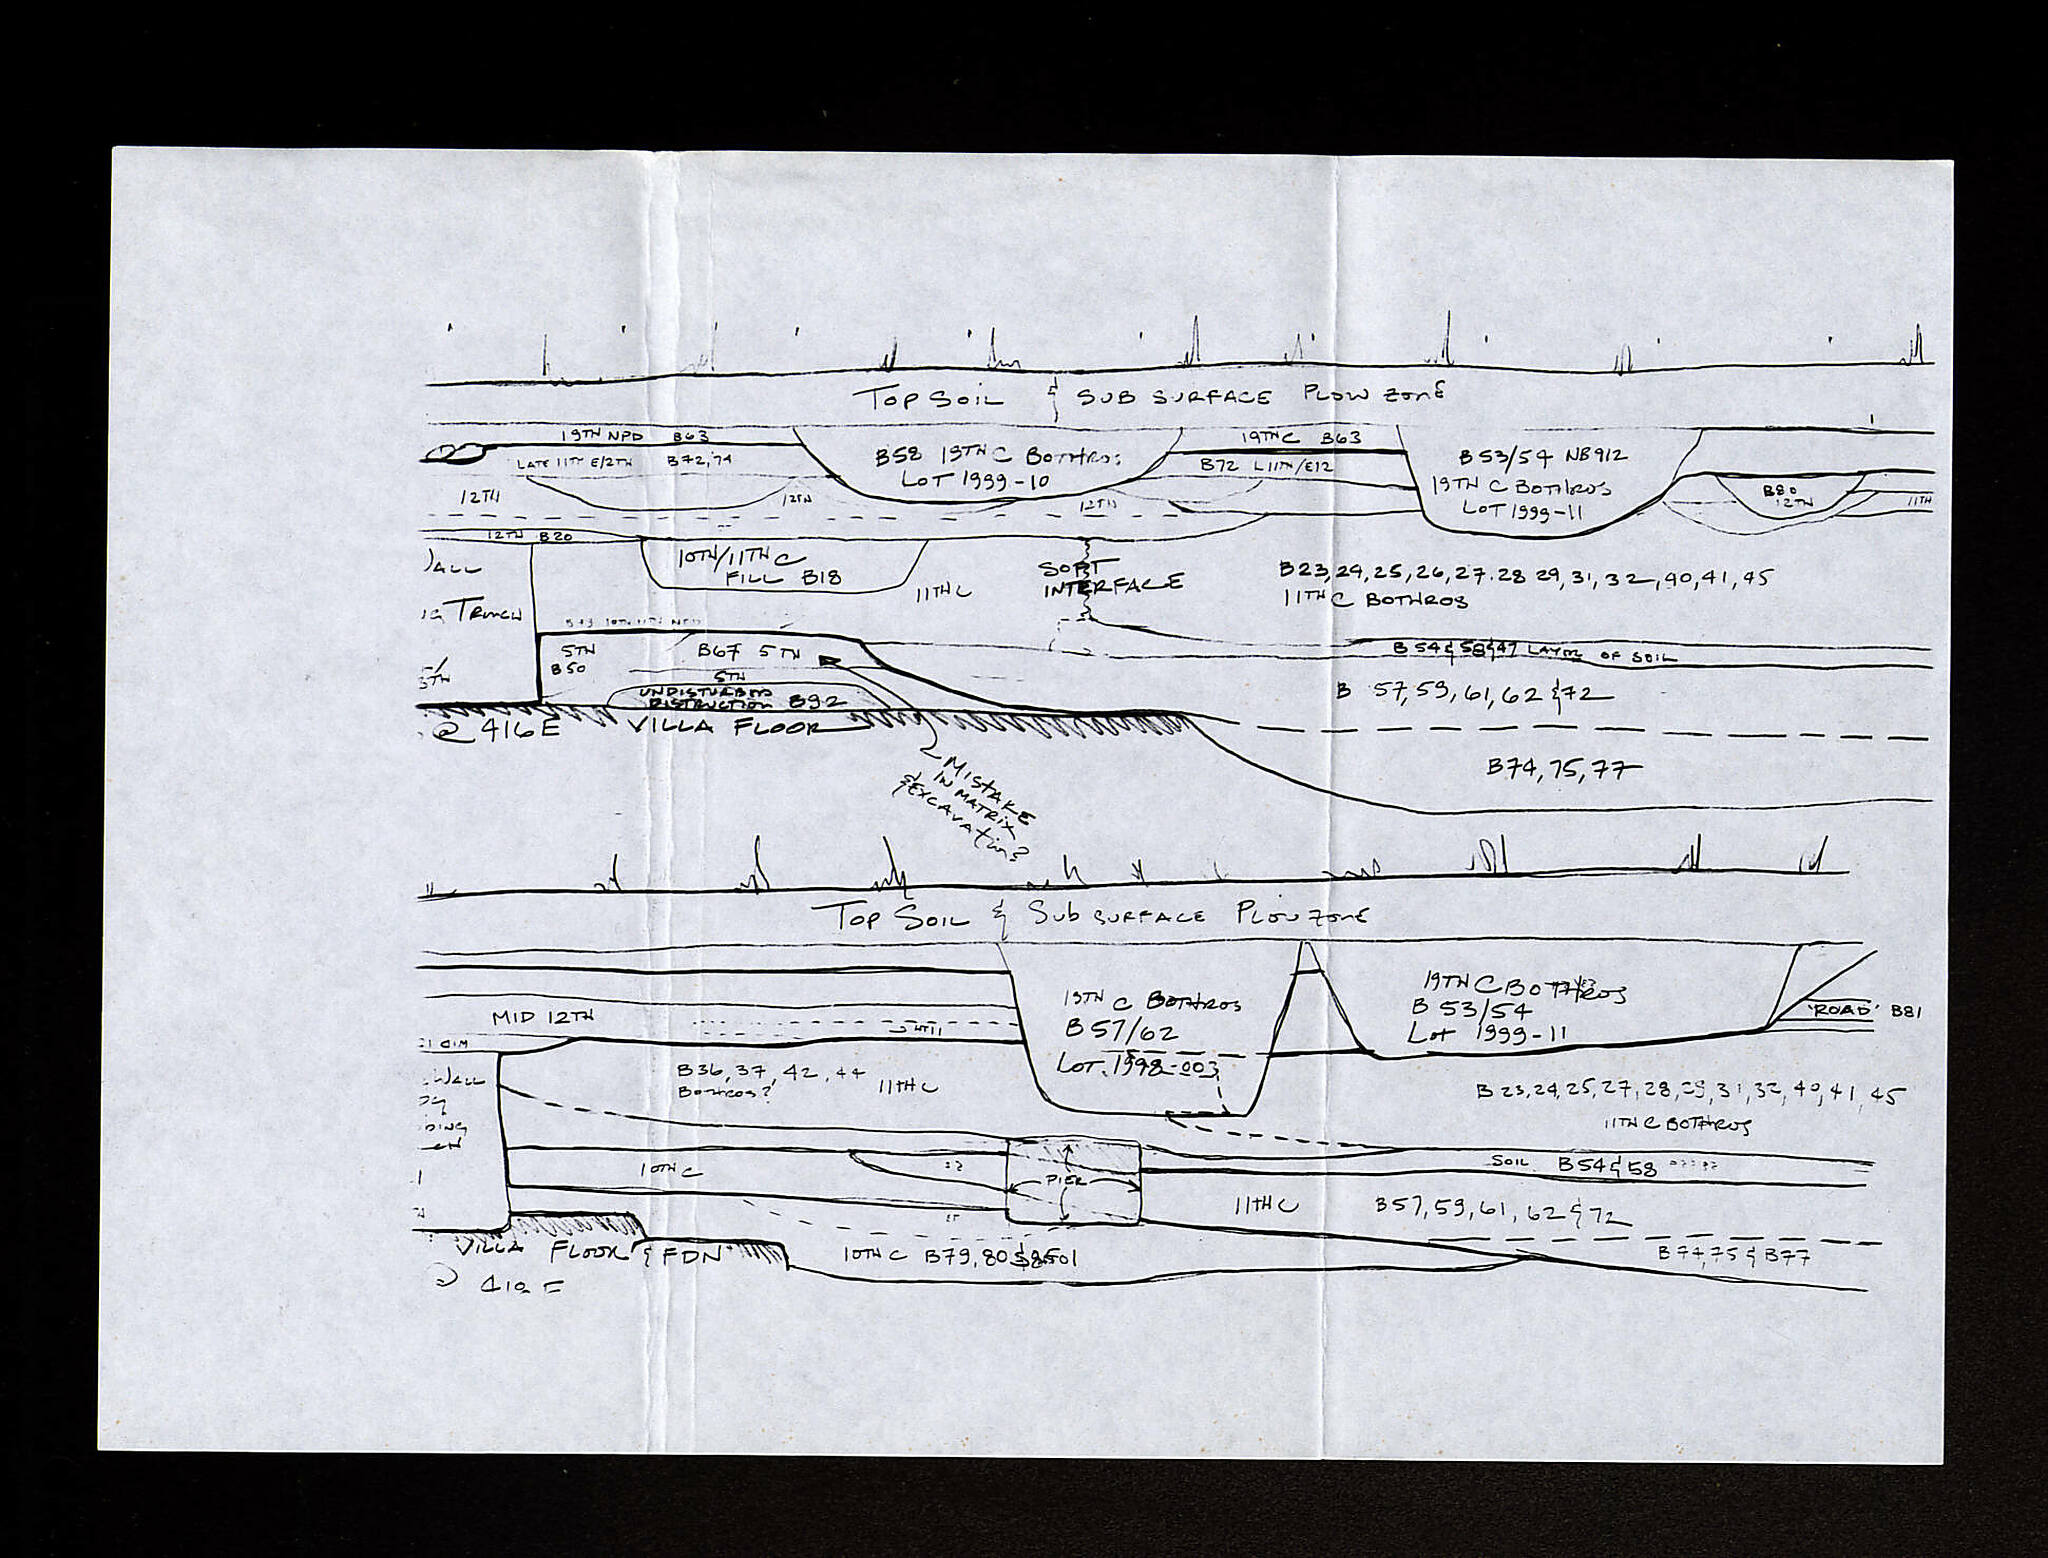 TOP SOIL & SUB SURFACE PLOW ZONE
19TH NPD B63
B58 19TH C BOTHROS
LOT 1999-10
19TH C B63
B53/54 NB912
19TH C BOTHROS
LOT 1999-11
LATE 11TH E/12TH B72,74
B72 L11TH/E12
12TH
12TH
12TH
B80
12TH
11TH
12TH B20
10TH/11TH C
FILL B18
11TH C
SOFT
INTERFACE
B23,24,25,26,27.28 29,31,32,40,41,45
11TH C BOTHROS
ALL
TRENCH
5TH
B50
B67 5TH
5TH
UNDISTURBED
DISTRUCTION B92
B54 & 58 & 47 LAYER OF SOIL
B 57,59,61,62 & 72
@ 416E VILLA FLOOR
B74,75,77
MISTAKE
IN MATRIX
& EXCAVATION?
TOP SOIL & SUB SURFACE PLOW ZONE
MID 12TH
19TH C BOTHROS
B57/62
LOT.1998-003
19TH C BOTHROS
B 53/54
LOT 1999-11
'ROAD' B81
WALL
B36,37,42,44
BOTHROS?
11TH C
B23,24,25,27,28,29,31,32,40,41,45
11TH C BOTHROS
10TH C
PIER
SOIL B54 & 58
11TH C
B57,59,61,62 & 72
VILLA FLOOR & FDN
10TH C B79,80
B74,75 & B77